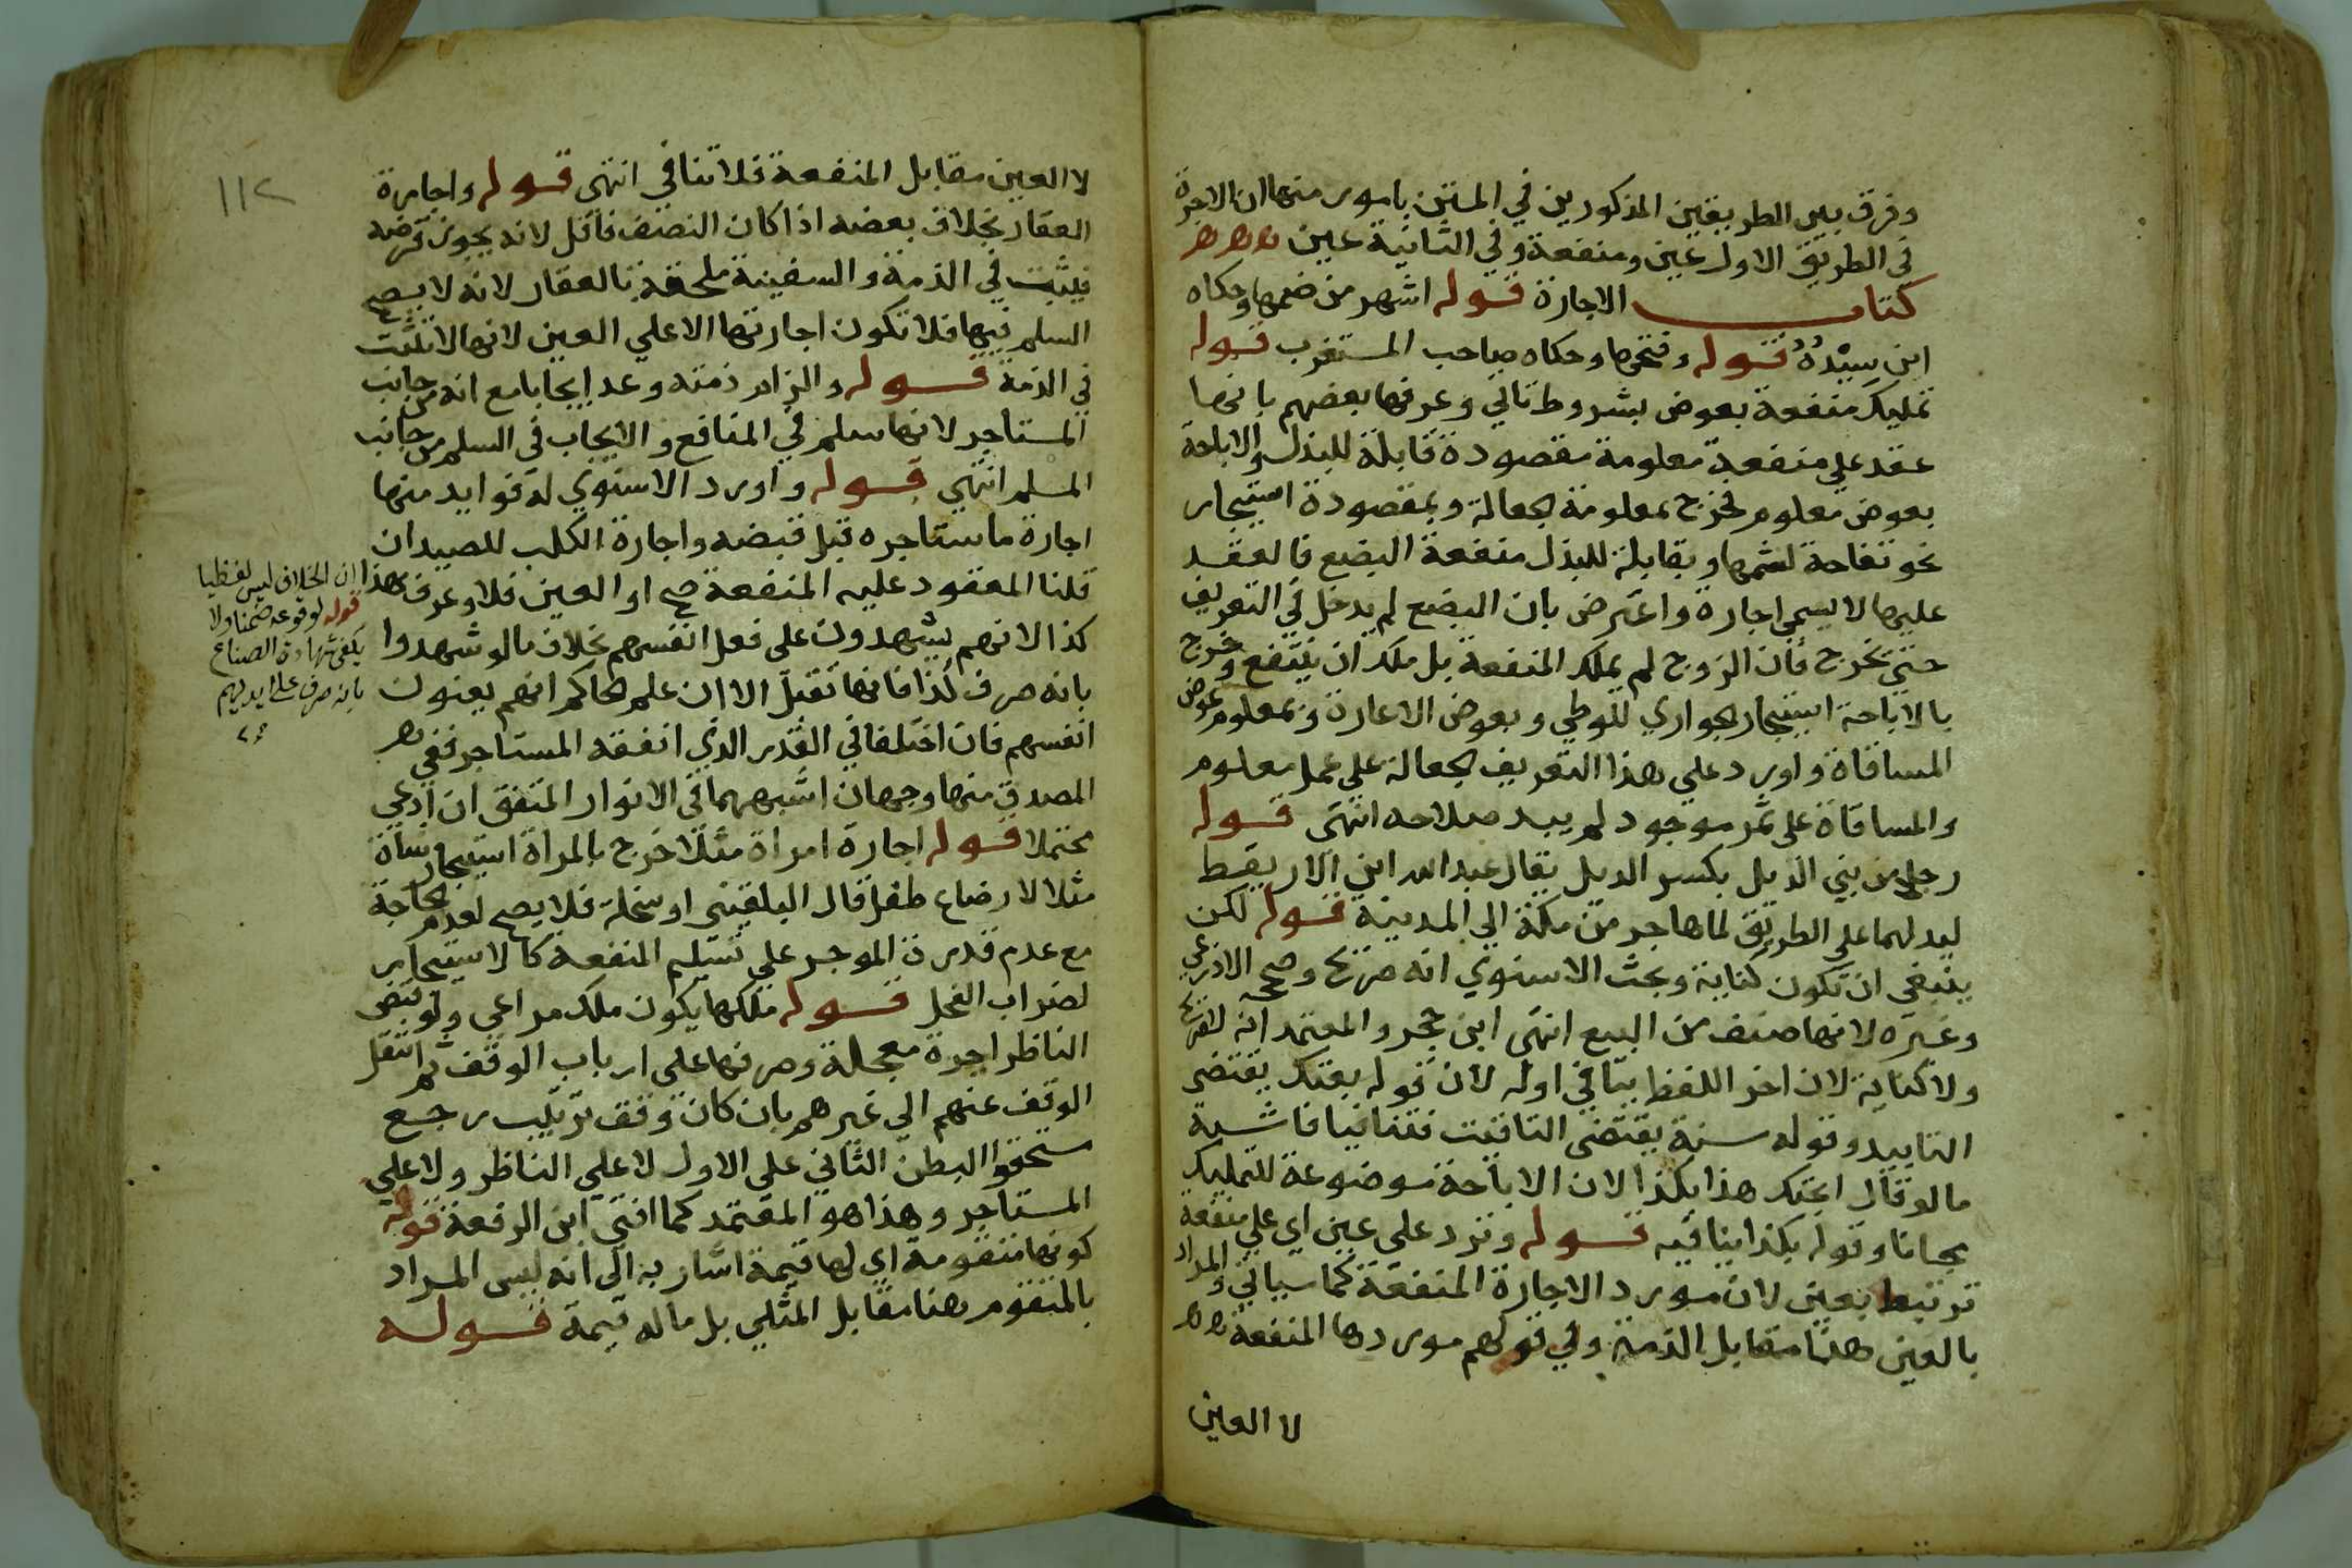 وفرق بين الطريقين المذكورين في المتن بامور منها ان الاجرة
في الطريق الاول عين ومنفعة وفي الثانية عين
كتاب الاجارة قوله اشهر من ضمها وحكاه
ابن سيدة قوله وفتحها وحكاه صاحب المستغرب قوله
تمليك منفعة بعوض بشروط تاتي وعرفها بعضهم بانها
عقد علي منفعة معلومة مقصودة قابلة للبذل والاباحة
بعوض معلوم فخرج بمعلومة الجعالة وبمقصودة استيجار
نحو تفاحة لشمها وبقابلة للبذل منفعة البضع فالعقد
عليها لا يسمي اجارة واعترض بان البضع لم يدخل في التعريف
حتي يخرج فان الزوج لم يملك المنفعة بل ملك ان ينتفع وخرج
بالاباحة استيجار الجواري للوطي وبعوض الاعارة وبمعلوم عوض
المساقاة واورد علي هذا التعريف الجعالة علي عمل معلوم
والمساقاة علي ثمر موجود لم يبد صلاحه انتهى قوله
رجل من بني الديل بكسر الديل يقال عبد الله ابن الاريقط
ليدلهما على الطريق لما هاجر من مكة الي المدينة قوله لكن
ينبغي ان تكون كناية وبحث الاسنوي انه صريح وصححه الاذرعي
وغيره لانها صنف من البيع انتهى ابن حجر والمعتمد انه لا صريح
ولا كناية لان اخر اللفظ ينافي اوله لان قوله بعتك يقتضي
التابيد وقوله سنة يقتضي التاقيت فتنافيا فاشبه
ما لو قال ابحتك هذا بكذا لان الاباحة موضوعة للتمليك
مجانا وقوله بكذا ينافيه قوله وترد على عين اي علي منفعة
ترتبط بعين لان مورد الاجارة المنفعة كما سياتي والمراد
بالعين هنا مقابل الذمة وفي قولهم موردها المنفعة
لا العين
١١٢
لا العين مقابل المنفعة فلا تنافي انتهى قوله واجارة
العقار بخلاف بعضه اذا كان النصف فاقل لانه يجوز قرضه
فيثبت في الذمة والسفينة ملحقة بالعقار لانه لا يصح
السلم فيها فلا تكون اجارتها الا علي العين لانها لا تثبت
في الذمة قوله والزام ذمته وعد ايجابا مع انه من جانب
المستاجر لانها سلم في المنافع والايجاب في السلم من جانب
المسلم انتهي قوله واورد الاسنوي له فوايد منها
اجارة ما استاجره قبل قبضه واجارة الكلب للصيد ان
قلنا المعقود عليه المنفعة صح او العين فلا وعرف بهذا
ان الخلاف ليس لفظيا
قوله لوقوعه ضمنا ولا
يكفي شهادة الصناع
بانه صرف على ايديهم
كذا لانهم يشهدون على فعل انفسهم بخلاف ما لو شهدوا
بانه صرف كذا فانها تقبل الا ان علم الحاكم انهم يعنون
انفسهم فان اختلفا في القدر الذي انفقه المستاجر ففي
المصدق منها وجهان اشبههما في الانوار المنفق ان ادعي
محتملا قوله اجارة امراة مثلا خرج بالمراة استيجار شاة
مثلا لارضاع طفل قال البلقيني او سخلة فلا يصح لعدم الحاجة
مع عدم قدرة الموجر علي تسليم المنفعة كالاستيجار
لضراب الفحل قوله ملكها يكون ملك مراعي ولو قبض
الناظر اجرة معجلة وصرفها على ارباب الوقف ثم انتقل
الوقف عنهم الي غيرهم بان كان وقف ترتيب رجع
مستحقوا البطن الثاني على الاول لا علي الناظر ولا علي
المستاجر وهذا هو المعتمد كما افتي ابن الرفعة قوله
كونها متقومة اي لها قيمة اشار به الى انه ليس المراد
بالمتقوم هنا مقابل المثلي بل ما له قيمة قوله